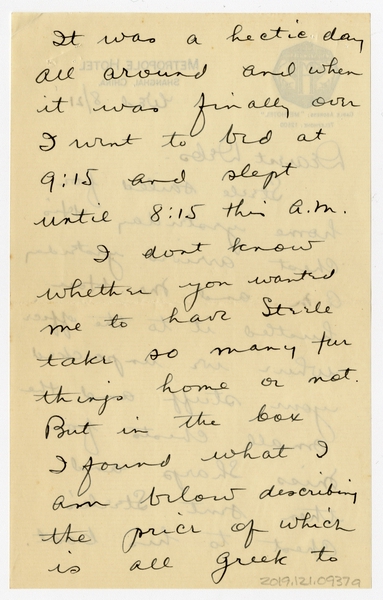 It was a hectic day
all around and when
it was finally over
I went to bed at
9:15 and slept
until 8:15 this A.M.
I dont know
whether you wanted
me to have Steele
take so many fur
things home or not.
But in the box
I found what I
am below describing
the price of which
is all greek to
2019.121.0937a